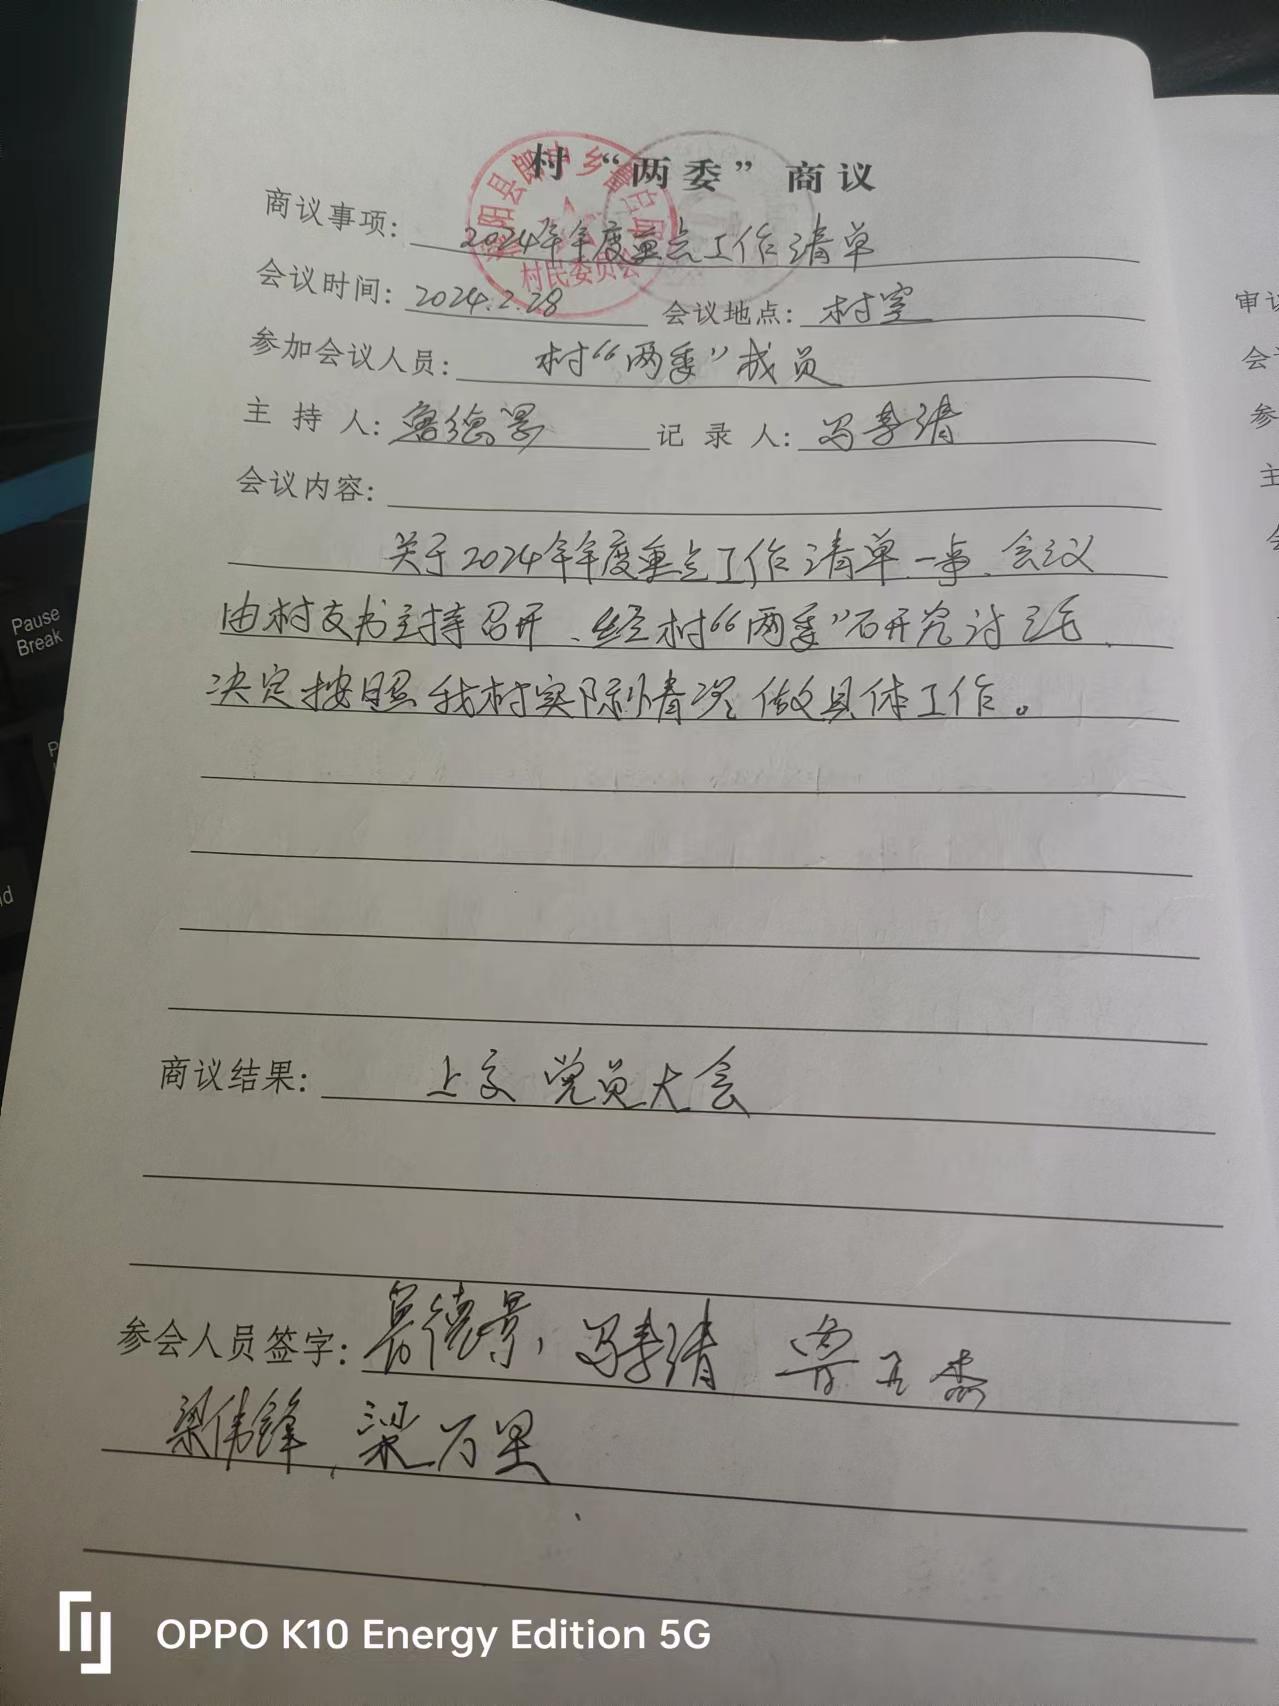 村“两委”商议
商议事项: 2024年年度重点工作清单
村民委员会
会议时间: 2024.2.28 会议地点: 村室
参加会议人员: 村“两委”成员
主持人: 德景 记录人: 冯季清
会议内容:
关于2024年年度重点工作清单一事、会议
由村支书主持召开、经村“两委”研究讨论,
决定按照我村实际情况做具体工作。
商议结果: 上交党员大会
参会人员签字: 德景, 冯季清 鲁
梁伟锋, 梁万里
审议
会
参
主
会
Pause
Break
OPPO K10 Energy Edition 5G